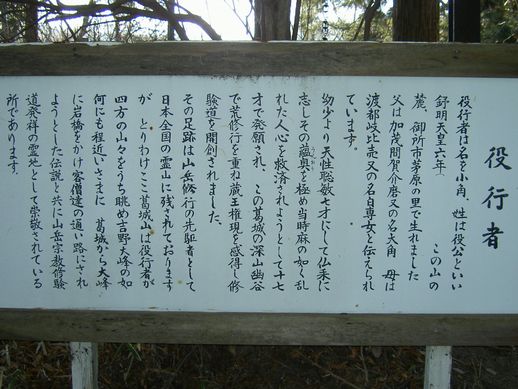 役行者
役行者は名を小角、姓は役公といい
舒明天皇六年 この山の
麓、御所市茅原の里で生れました
父は加茂間賀介麿又の名大角 母は
渡都岐比売又の名白専女と伝えられ
ています。
幼少より天性聡敏七才にして仏乗に
志しその蘊奥を極め当時麻の如く乱
れた人心を救済されようとして十七
才で発願され、この葛城の深山幽谷
で荒修行を重ね蔵王権現を感得し修
験道を開創されました、
その足跡は山岳修行の先駆者として
日本全国の霊山に残されております
が とりわけここ葛城山は役行者が
四方の山々をうち眺め吉野大峰の如
何にも程近いさまに 葛城から大峰
に岩橋をかけ客僧達の通い路にされ
ようとした伝説と共に山岳宗教修験
道発祥の霊地として崇敬されている
所であります。